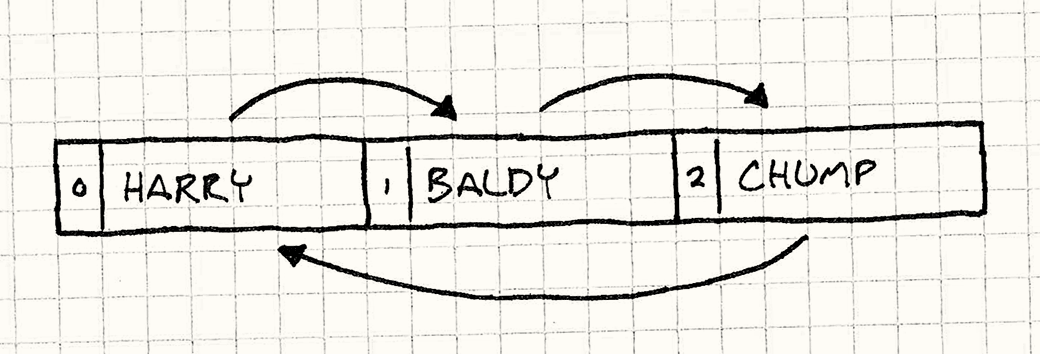 0 HARRY 1 BALDY 2 CHUMP